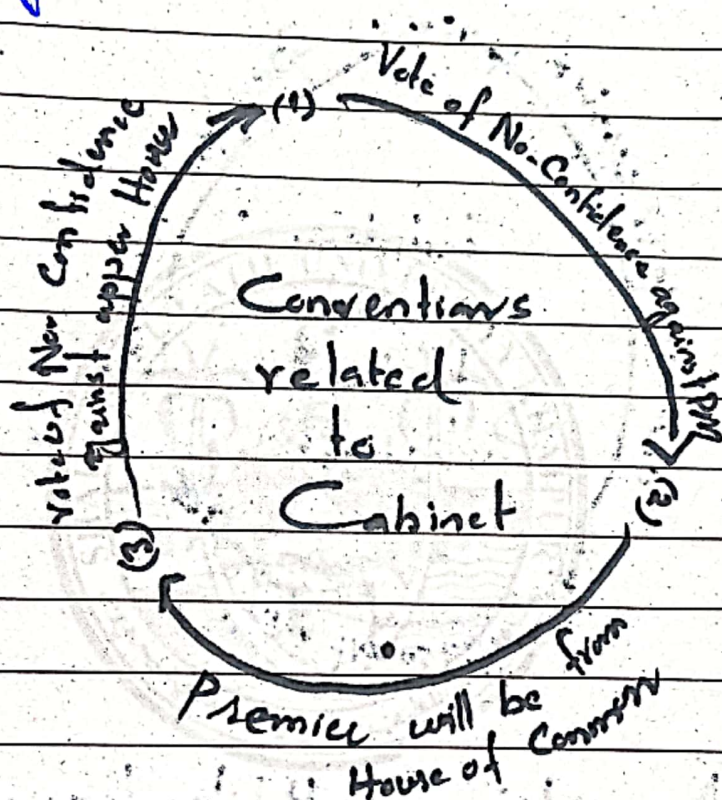 (1)
Vote of No-Confidence against PM
(2)
Premier will be from
House of Common
(3)
vote of No Confidence
against upper House
Conventions
related
to
Cabinet